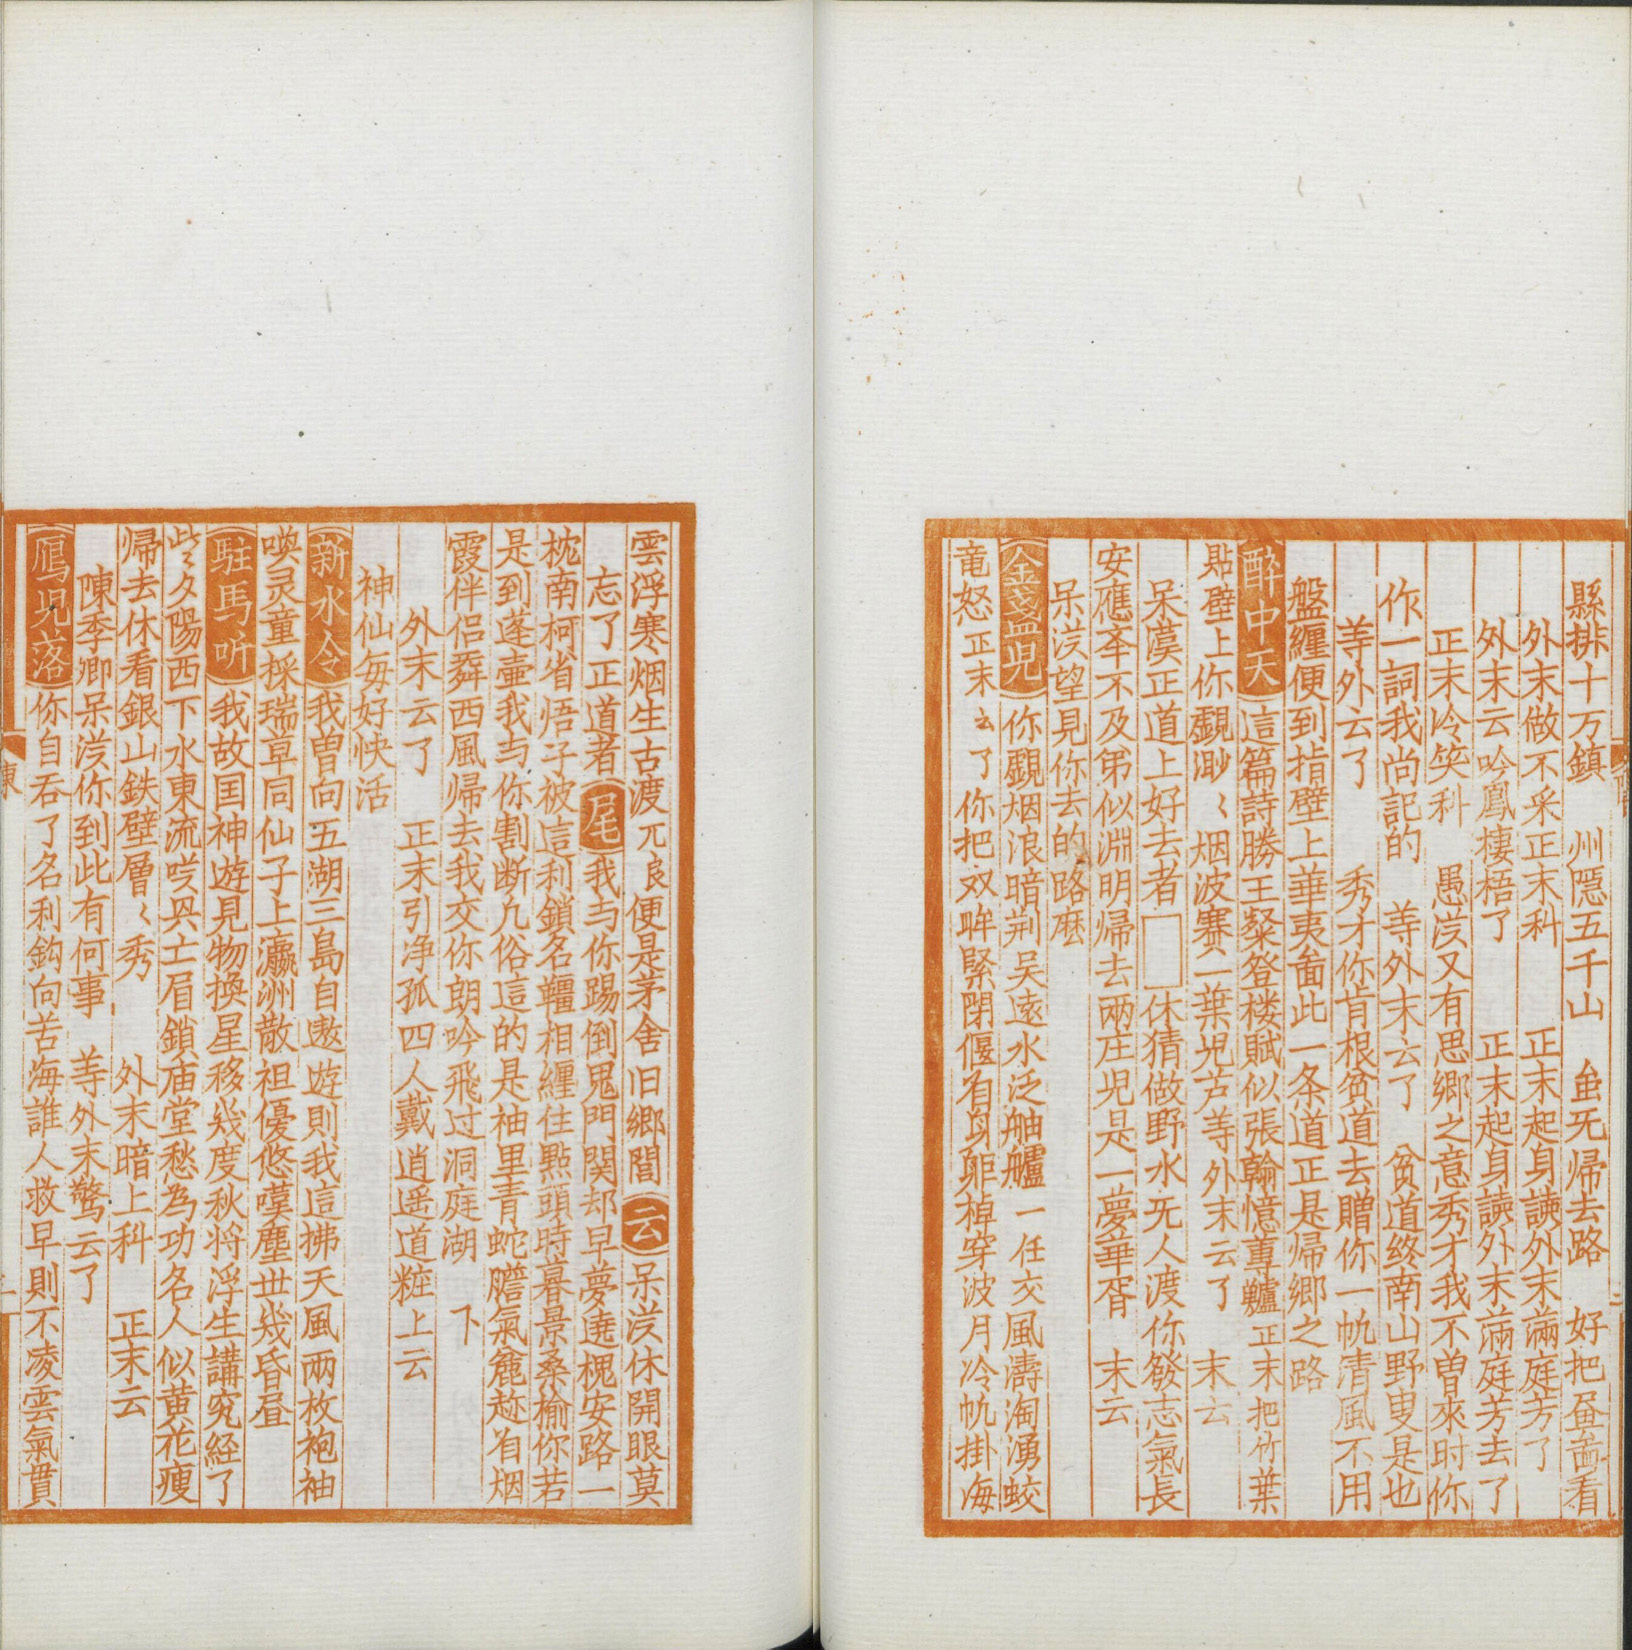 縣排十万鎮　州隠五千山　虽无帰去路　好把昼啚看
外末做不采正末科　正末起身諕外末滿庭方了
外末云吟鳳棲梧了　正末起身諕外末滿庭芳去了
正末冷笑科　愚漢又有思郷之意秀才我不曽來时你
作一詞我尚記的　等外末云了　貧道終南山野叟是也
等外云了　秀才你肯根貧道去贈你一帆清風不用
盤纏便到指壁上華夷啚此一条道正是帰郷之路
醉中天　這篇詩勝王粲登楼賦似張翰憶蓴鱸正末把竹葉
貼壁上你覰渺〻烟波賽一葉児芦等外末云了　末云
呆漢正道上好去者□休猜做野水无人渡你發志氣長
安應夲不及弟似淵明帰去兩庄児是一夢華胥　末云
呆漢望見你去的路麽
金盞児　你覰烟浪暗荆吴遠水泛舳艫一任交風濤洶湧蛟
竜怒正末云了你把双眸緊閉偃着身躯棹穿波月冷帆掛海
雲浮寒烟生古渡兀良便是茅舍旧郷閭　云　呆漢休開眼莫
忘了正道者　尾　我与你踢倒鬼門関却早夢遶槐安路一
枕南柯省悟子被這利鎖名韁相纏住點頭時暮景桑榆你若
是到蓬壷我与你割断凢俗這的是袖里青蛇膽氣麄趂着烟
霞伴侣舜西風帰去我交你朗吟飛过洞庭湖　下
外末云了　正末引净孤四人戴逍遥道粧上云
神仙每好快活
新水令　我曽向五湖三島自遨遊則我這拂天風兩枚袍袖
喚灵童採瑞草同仙子上瀛洲散袒優悠嘆塵世幾昏昼
駐馬听　我故国神遊見物換星移幾度秋将浮生講究経了
些夕陽西下水東流叹興亡眉鎖庙堂愁為功名人似黄花瘦
帰去休看銀山鉄壁層〻秀　外末暗上科　正末云
陳季卿呆漢你到此有何事　等外末驚云了
鴈児落　你自吞了名利鈎向苦海誰人救早則不凌雲氣貫